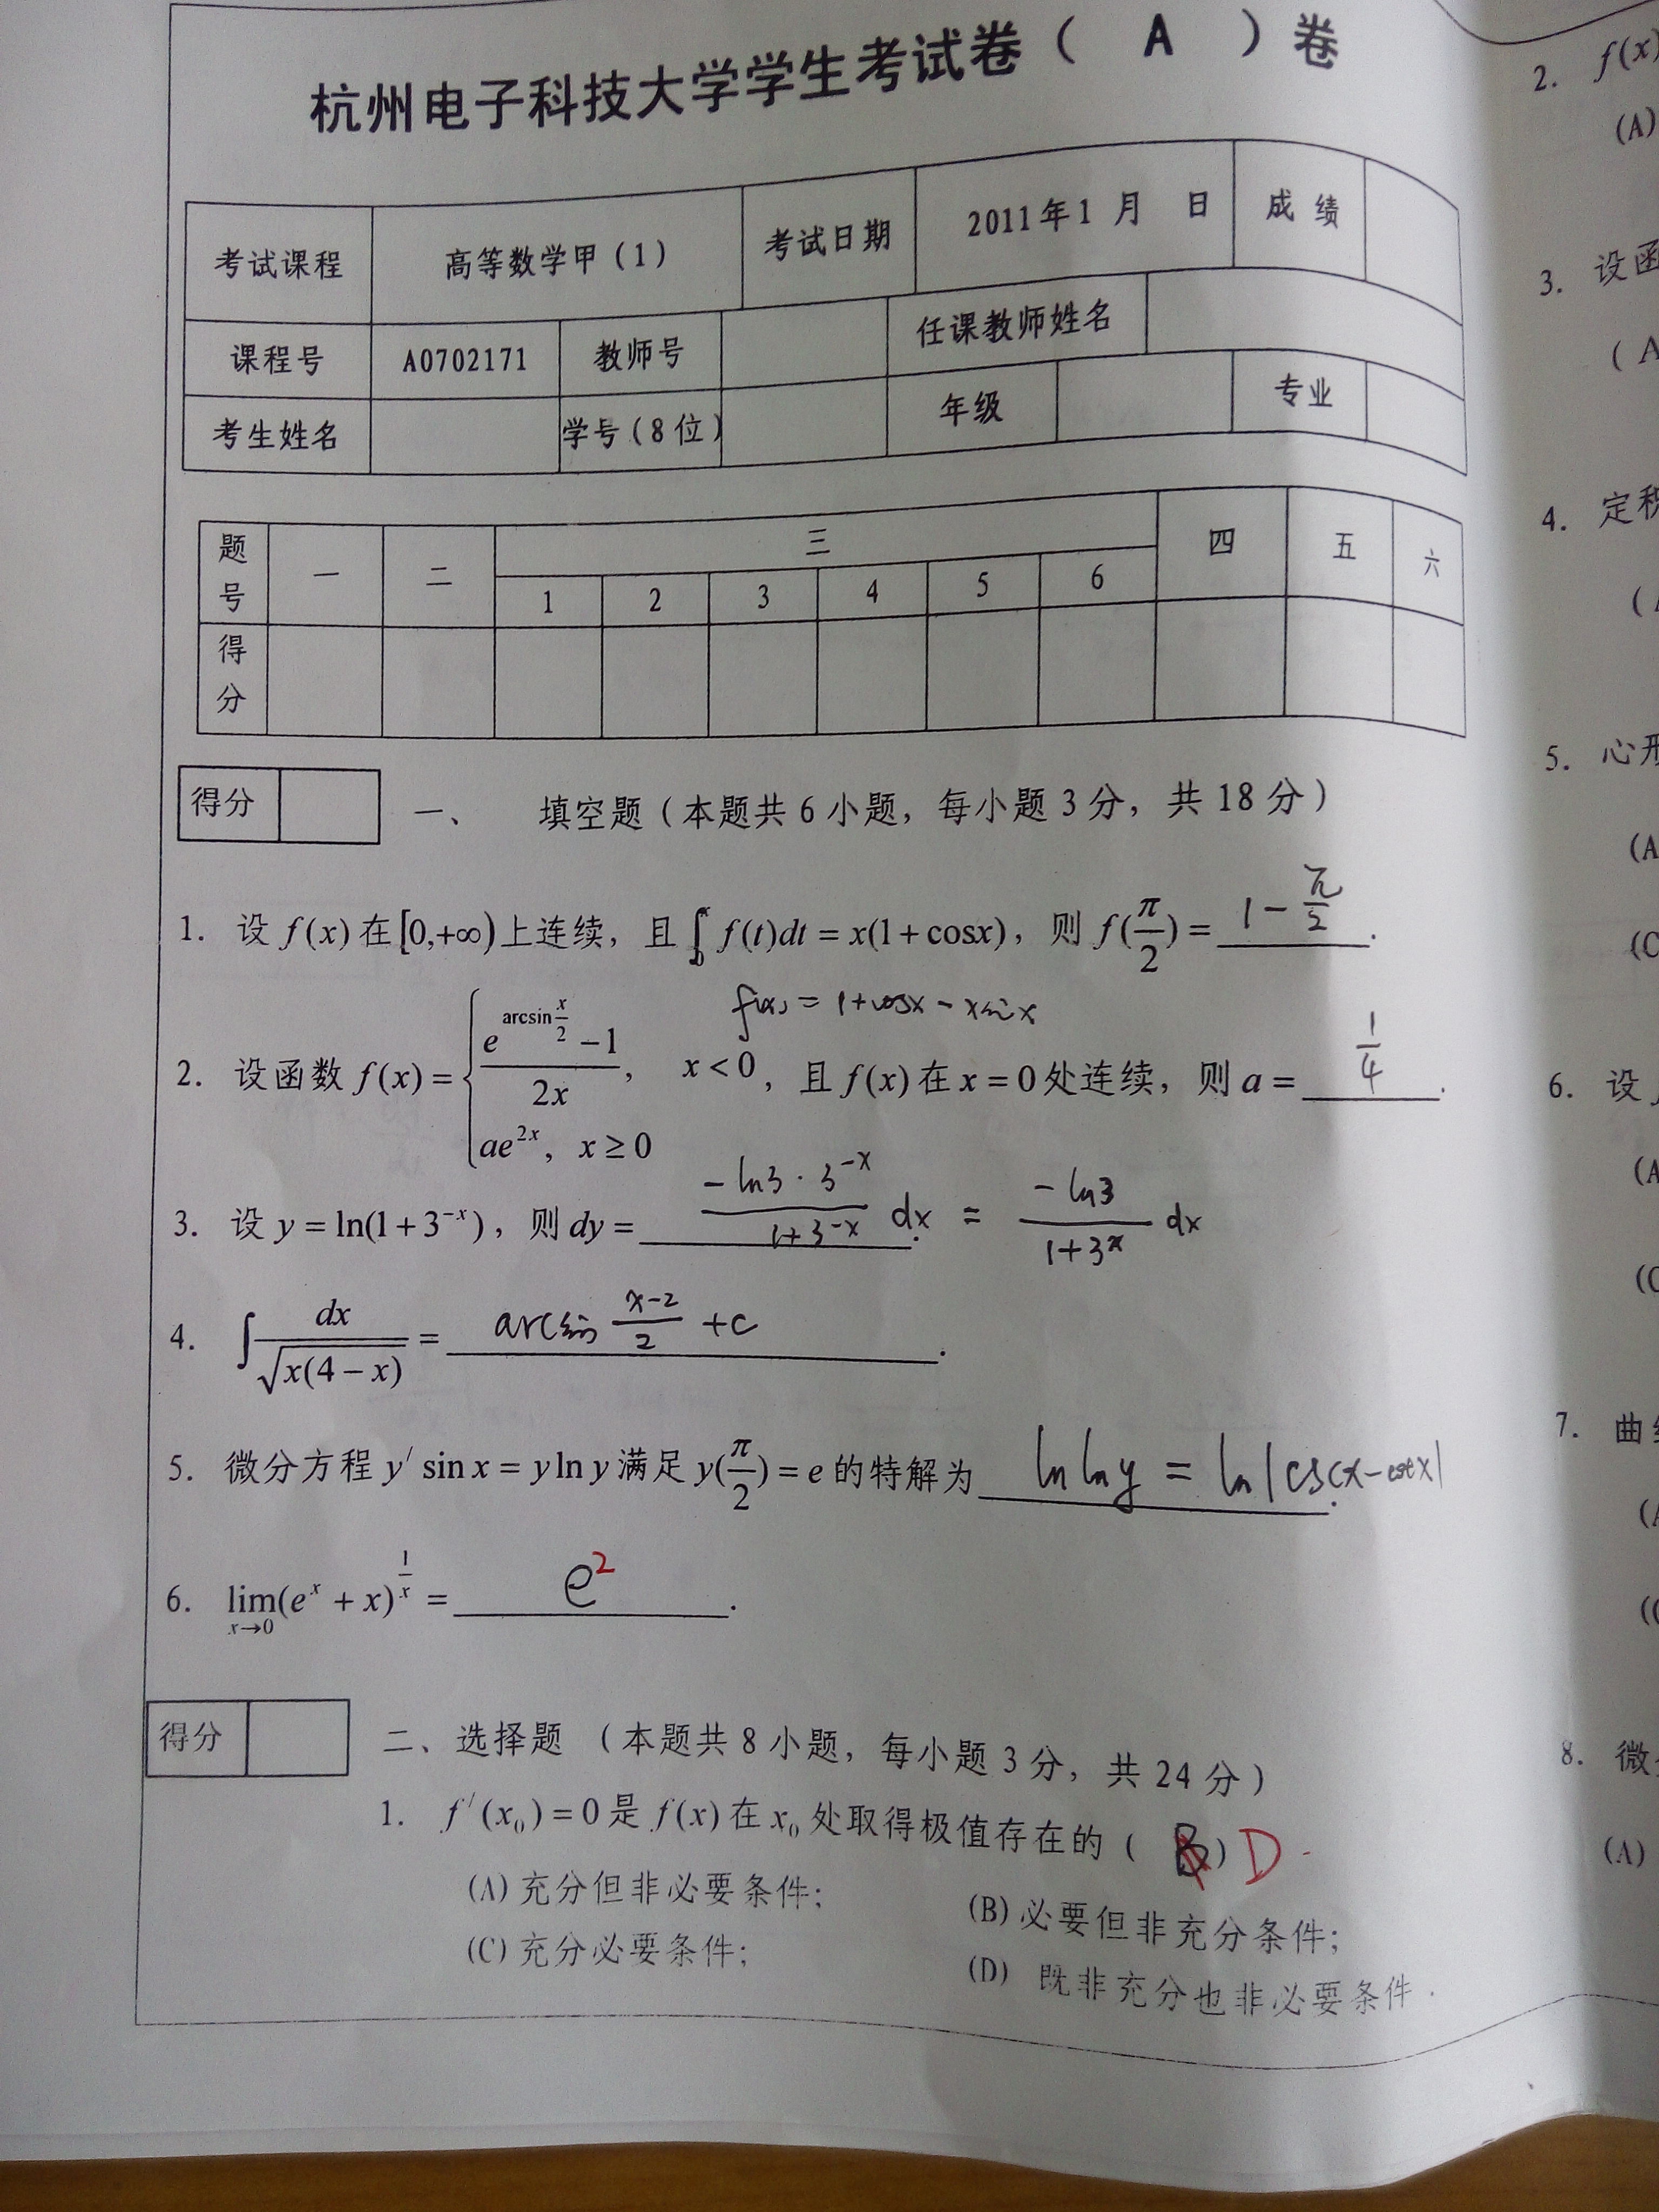 杭州电子科技大学学生考试卷( A )卷
考试课程 高等数学甲(1) 考试日期 2011年1 月 日 成 绩
课程号 A0702171 教师号 任课教师姓名
考生姓名 学号(8位) 年级 专业
题号 一 二 三 四 五 六
1 2 3 4 5 6
得分
得分
一、 填空题(本题共6小题,每小题3分,共18分)
1. 设 f(x) 在[0,+∞)上连续,且 ∫₀ˣ f(t)dt = x(1+cosx),则 f(π/2) = 1 - π/2 .
f(x) = 1+cosx - xsinx
2. 设函数 f(x) = { (e^(arcsin x/2) - 1)/2x, x < 0, 且 f(x) 在 x = 0 处连续,则 a = 1/4 .
ae^(2x), x ≥ 0
3. 设 y = ln(1+3^(-x)),则 dy = (-ln3·3^(-x))/(1+3^(-x)) dx = (-ln3)/(1+3^x) dx
4. ∫ dx/√(x(4-x)) = arcsin (x-2)/2 + C .
5. 微分方程 y′ sin x = y ln y 满足 y(π/2) = e 的特解为 ln ln y = ln|cscx-cotx| .
6. lim x→0 (e^x + x)^(1/x) = e² .
得分
二、选择题 (本题共8小题,每小题3分,共24分)
1. f′(x₀) = 0 是 f(x) 在 x₀ 处取得极值存在的( B ) D
(A) 充分但非必要条件; (B) 必要但非充分条件;
(C) 充分必要条件; (D) 既非充分也非必要条件.
2. f(x)
(A)
3. 设函
( A
4. 定积
(
5. 心形
(A
(C
6. 设
(A
(C
7. 曲
(
(
8. 微
(A)